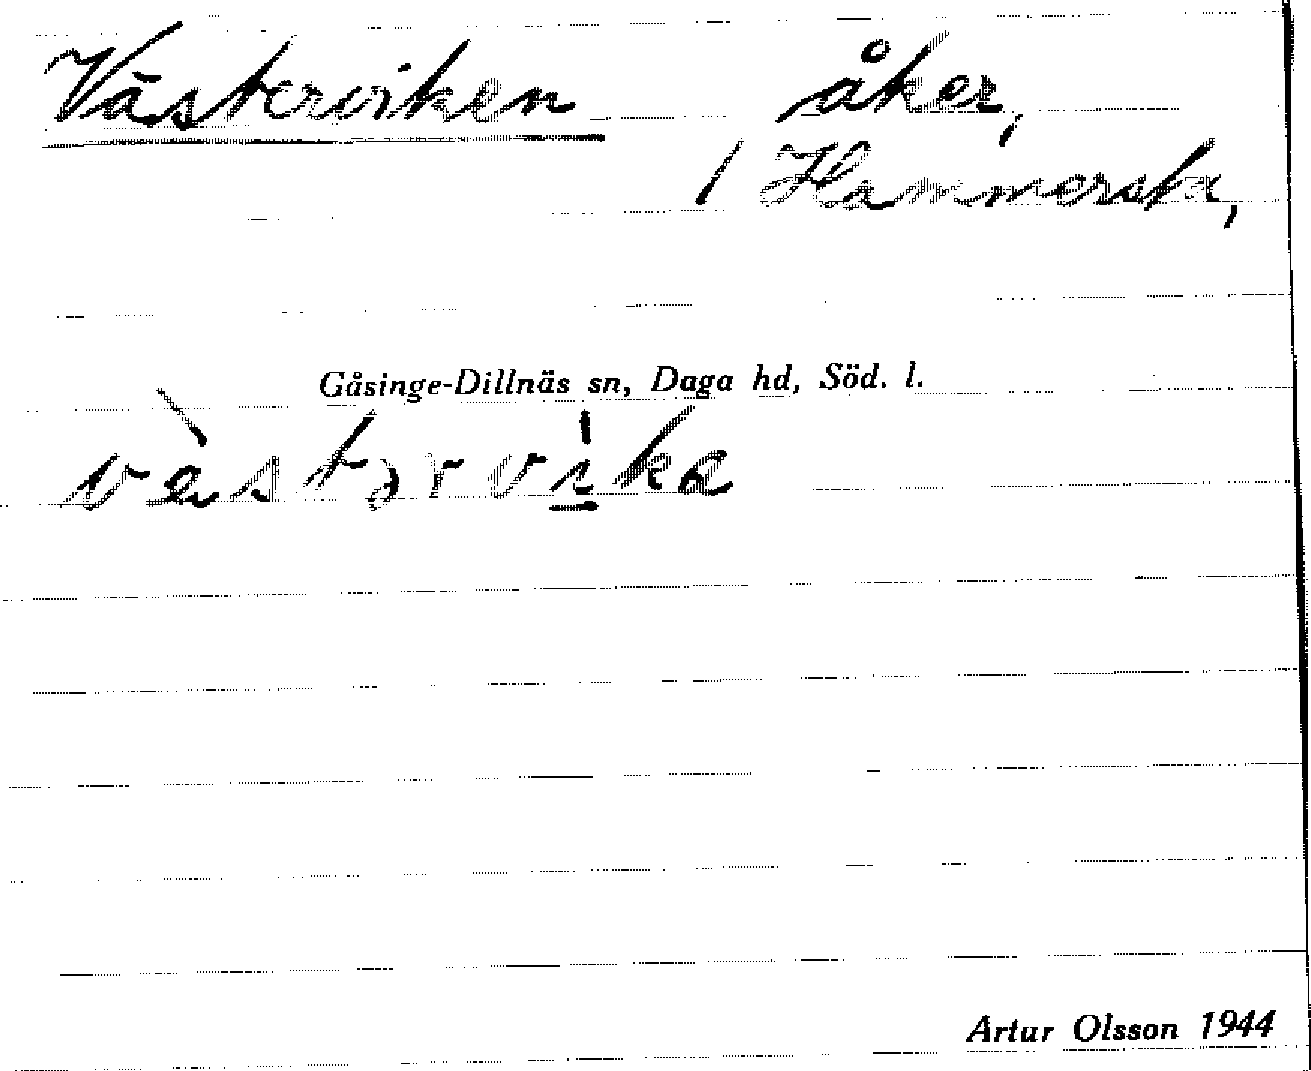 Västerviken åker,
/ Hammersta,
Gåsinge-Dillnäs sn, Daga hd, Söd. l.
vὲstərvi̠ka
Artur Olsson 1944